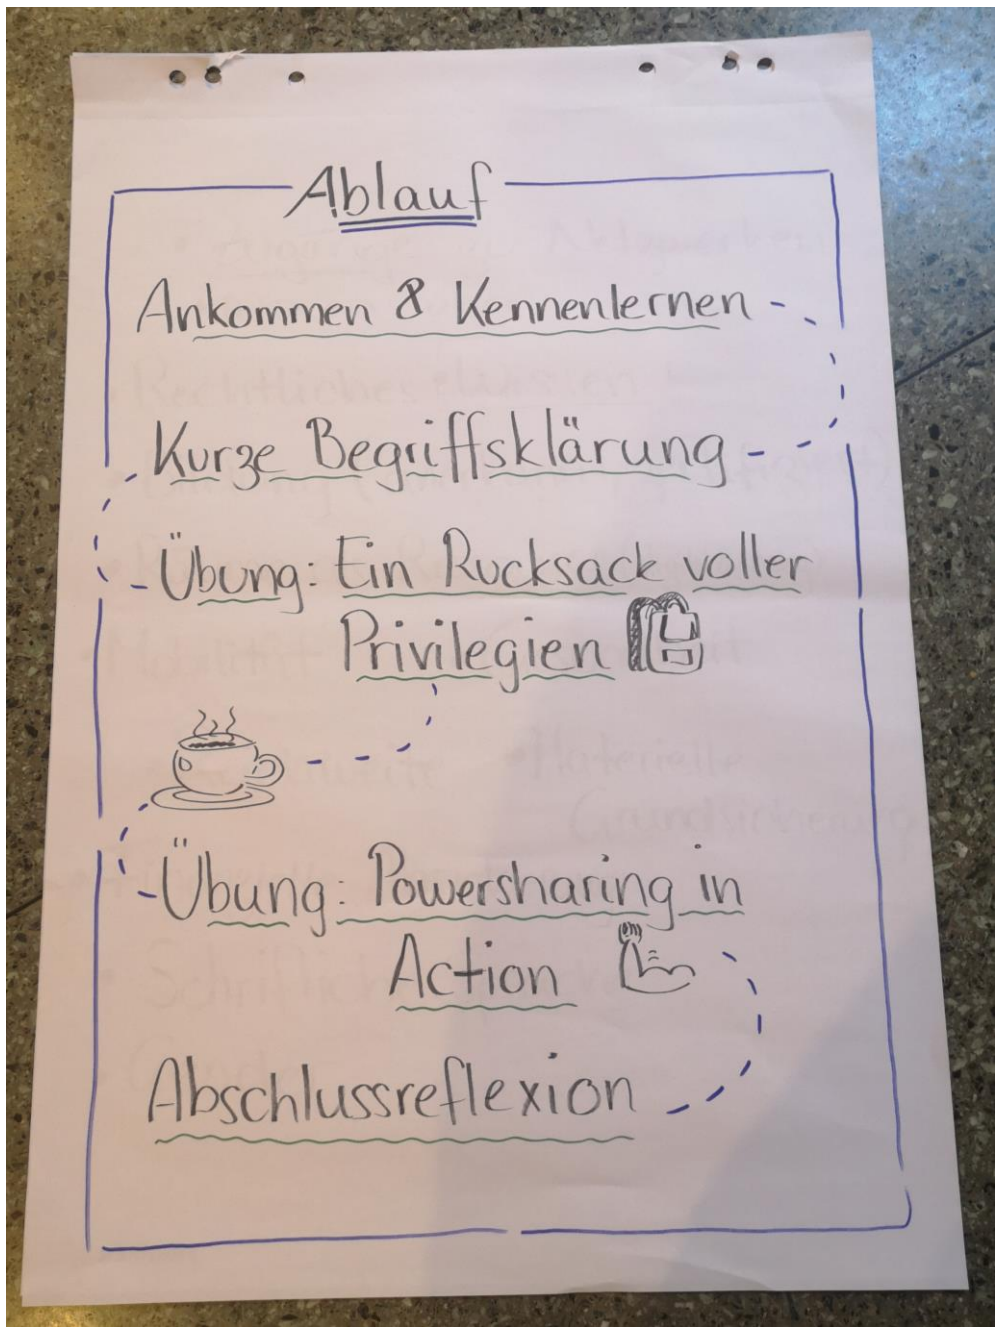 Ablauf
Ankommen & Kennenlernen
Kurze Begriffsklärung
Übung: Ein Rucksack voller
Privilegien
Übung: Powersharing in
Action
Abschlussreflexion